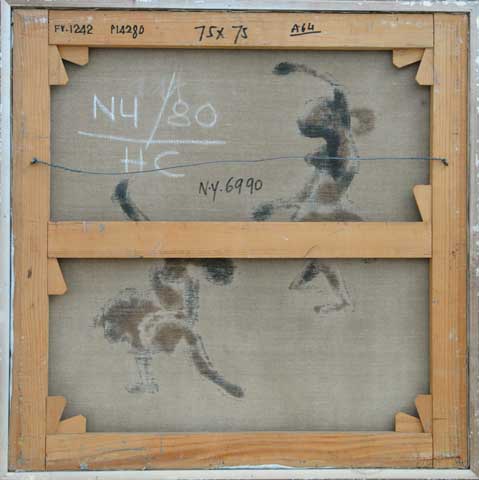 FY.1242 M4280 75 x 75 A64
N4/80
HC
N.Y.6990